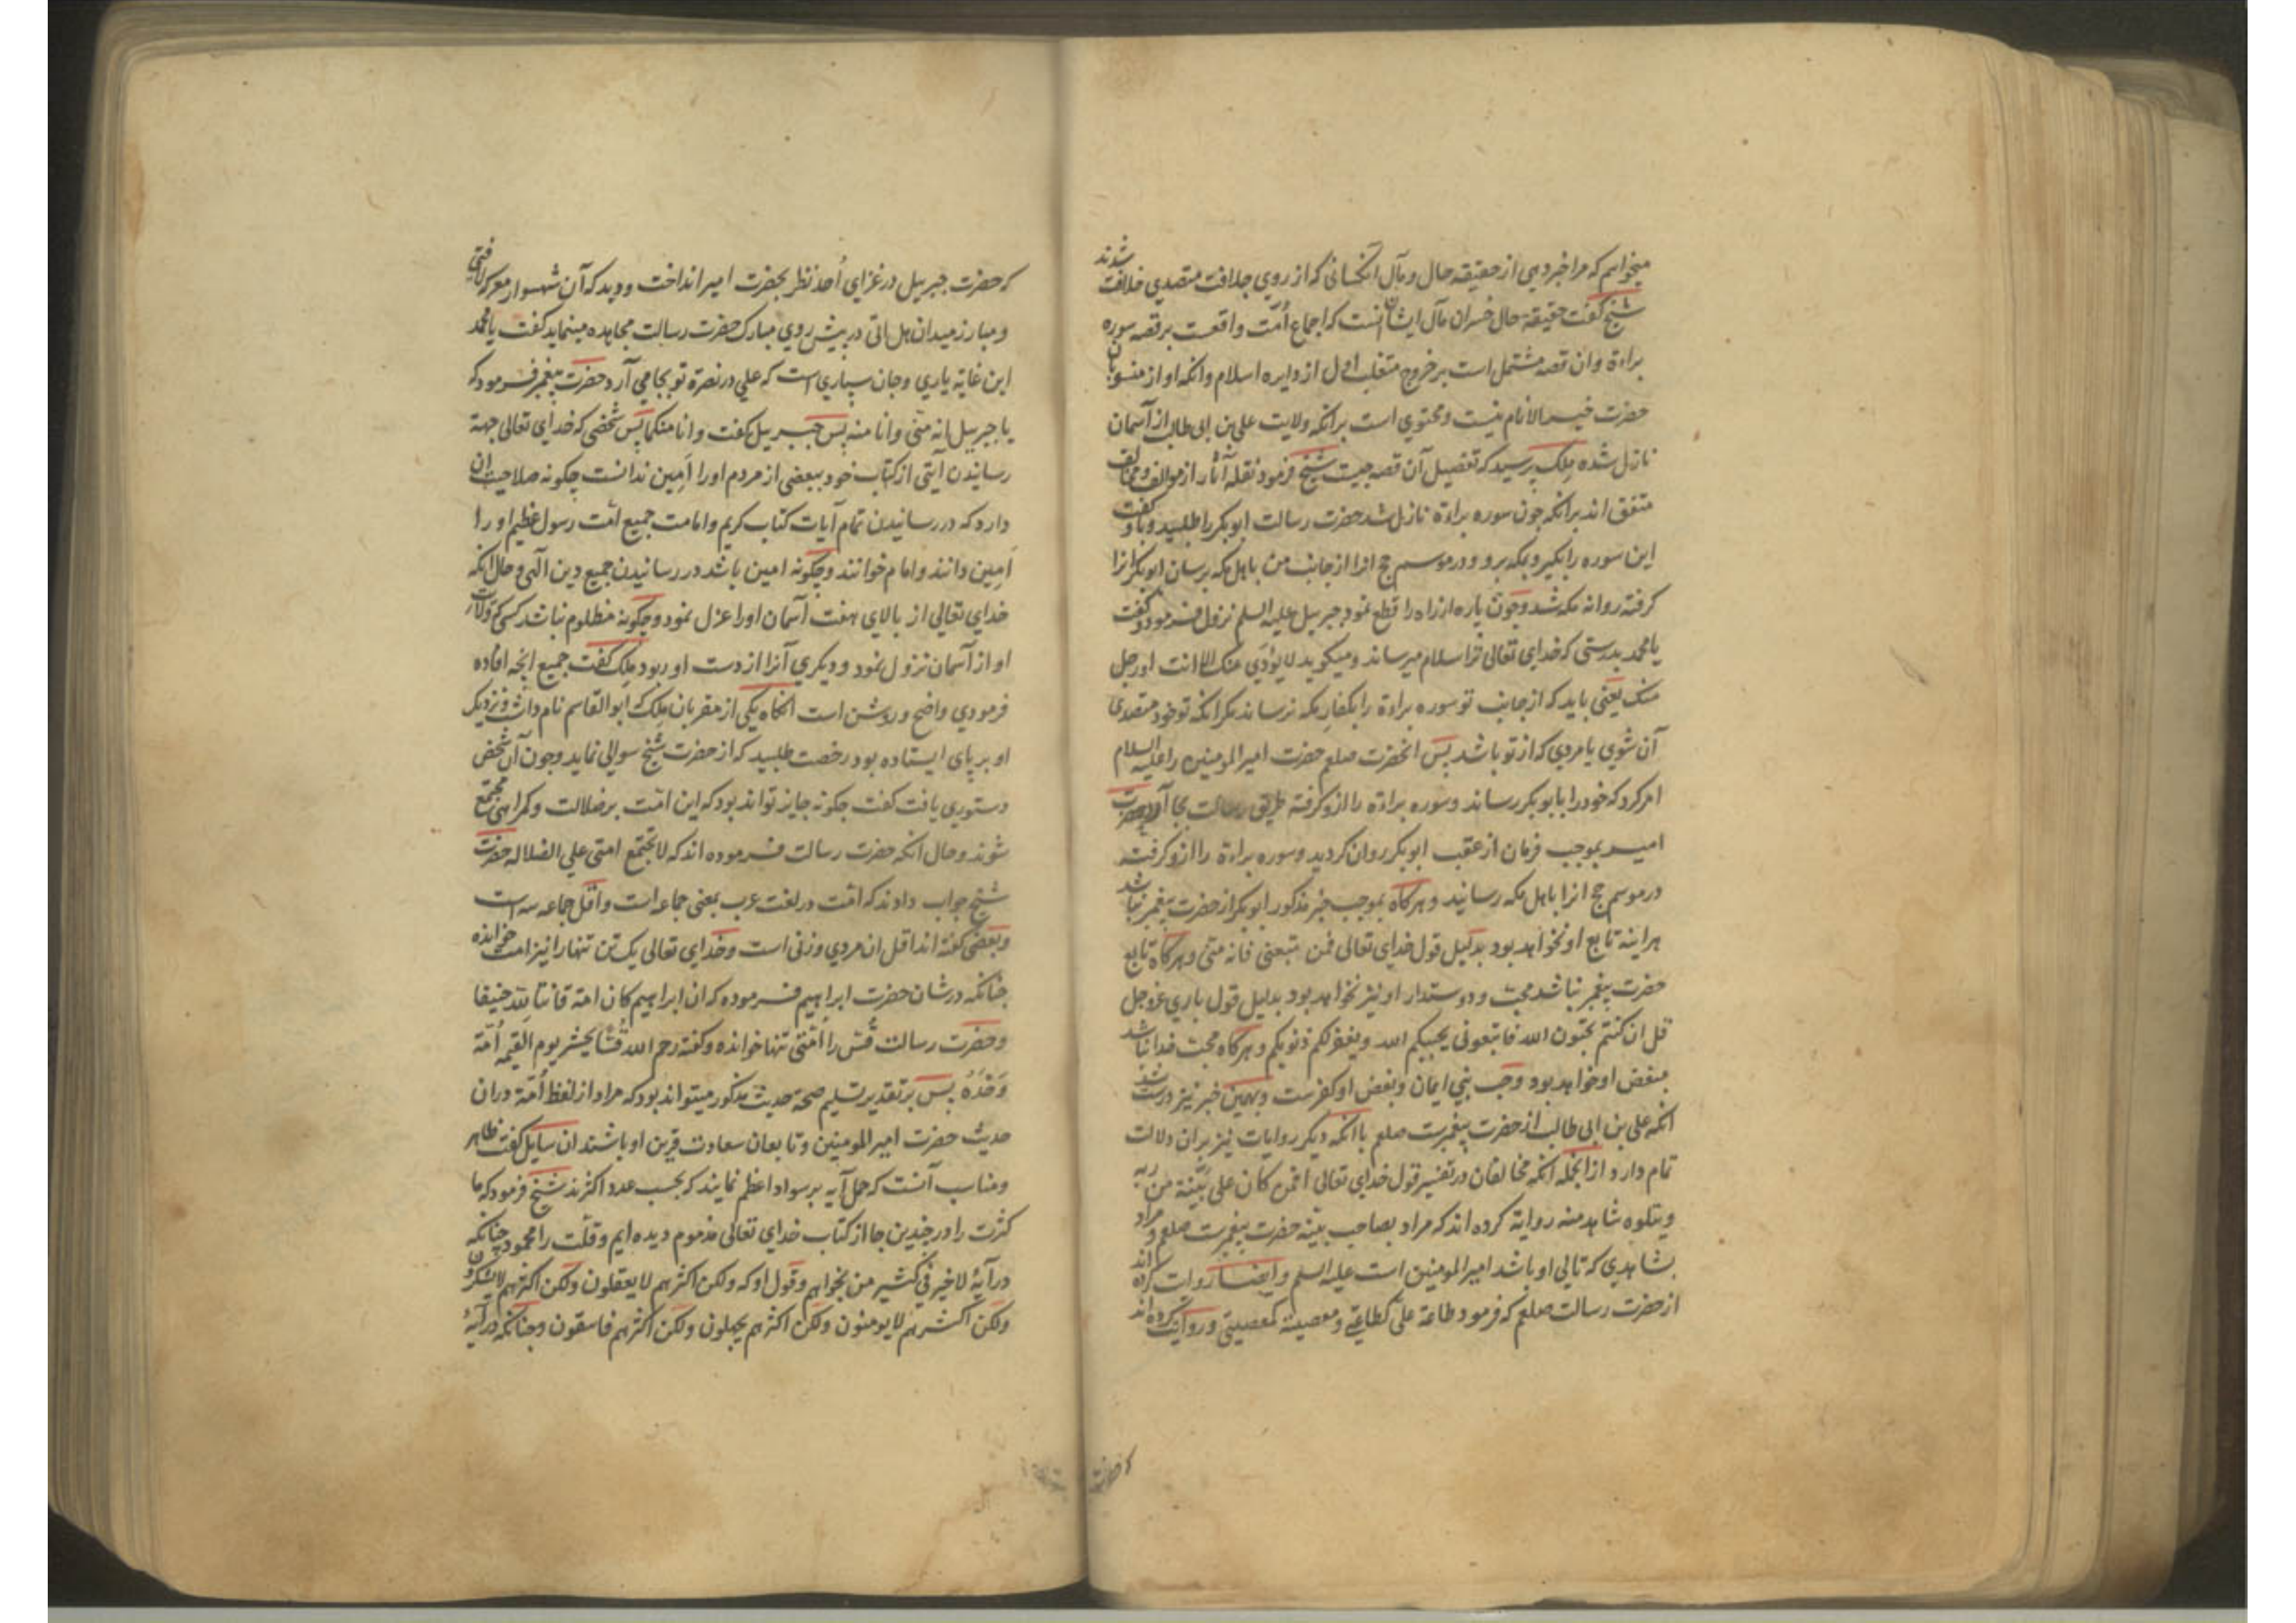 میخواهم که مرا خبر دهی از حقیقه حال و مآل آنکسانی که از روی جلافت متصدی خلافت شدند
شیخ گفت حقیقه حال خسران مآل ایشان آنست که اجماع اُمّت واقعست بر قصه سوره
براءة و ان قصه مشتمل است بر خروج متغلب اول از دایره اسلام و انکه او از منسوبان
حضرت خیر الانام نیست و محتوی است بر انکه ولایت علی بن ابی طالب از آسمان
نازل شده ملک پرسید که تفصیل آن قصه چیست شیخ فرمود نقله آثار از موالف و مخالف
متفق اند بر انکه چون سوره براءة نازل شد حضرت رسالت ابوبکر را طلبید و باو گفت
این سوره را بگیر و بمکه برو و در موسم حج انرا از جانب من باهل مکه برسان ابوبکر انرا
گرفته روانه مکه شد و چون پاره از راه را قطع نمود جبریل علیه السلم نزول فرمود و گفت
یا محمد بدرستی که خدای تعالی ترا سلام میرساند و میگوید لا یؤدّی عنک الا انت او رجل
منک یعنی باید که از جانب تو سوره براءة را بکفار مکه نرساند مگر انکه تو خود متصدی
آن شوی یا مردی که از تو باشد پس انحضرت صلعم حضرت امیر المومنین را علیه السلام
امر کرد که خود را بابوبکر رساند و سوره براءة را ازو گرفته طریق رسالت بجا آورد حضرت
امیر بموجب فرمان از عقب ابوبکر روان گردید و سوره براءة را ازو گرفت
در موسم حج انرا باهل مکه رسانید و هرگاه بموجب خبر مذکور ابوبکر از حضرت پیغمبر نباشد
هراینه تابع او نخواهد بود بدلیل قول خدای تعالی فمن تبعنی فانه منّی و هرگاه تابع
حضرت پیغمبر نباشد محبّ و دوستدار او نیز نخواهد بود بدلیل قول باری عزوجل
قل ان کنتم تحبّون الله فاتبعونی یحببکم الله و یغفر لکم ذنوبکم و هرگاه محبّ خدا نباشد
مبغض او خواهد بود و حب نبی ایمان و بغض او کفرست و بهمین خبر نیز درست شد
انکه علی بن ابی طالب از حضرت پیغمبرست صلعم با انکه دیگر روایات نیز بران دلالت
تمام دارد از انجمله انکه مخالفان در تفسیر قول خدای تعالی افمن کان علی بیّنة من ربه
و یتلوه شاهد منه روایة کرده اند که مراد بصاحب بیّنه حضرت پیغمبرست صلعم و مراد
بشاهدی که تالی او باشد امیر المومنین است علیه السلم و ایضا روایت کرده اند
از حضرت رسالت صلعم که فرمود طاعة علیّ کطاعتی و معصیته کمعصیتی و روایت کرده اند
که حضرت
که حضرت جبریل در غزای اُحد نظر بحضرت امیر انداخت و دید که آن شهسوار معرکه لافتی
و مبارز میدان هل اتی در پیش روی مبارک حضرت رسالت مجاهده مینماید گفت یا محمد
این غایة یاری و جان سپاری است که علی در نصرة تو بجا می آرد حضرت پیغمبر فرمود که
یا جبریل انه منّی و انا منه پس جبریل گفت و انا منکما پس شخصی که خدای تعالی جهة
رسانیدن آیتی از کتاب خود ببعضی از مردم او را اَمین ندانست چگونه صلاحیت ان
دارد که در رسانیدن تمام آیات کتاب کریم و امامت جمیع امّت رسول عظیم او را
اَمین دانند و امام خوانند و چگونه امین باشد در رسانیدن جمیع دین الهی و حال انکه
خدای تعالی از بالای هفت آسمان او را عزل نمود و چگونه مظلوم نباشد کسی که ولایت
او از آسمان نزول نمود و دیگری آنرا از دست او ربود ملک گفت جمیع انچه افاده
فرمودی واضح و روشن است انگاه یکی از مقربان ملک که ابوالقاسم نام داشت و نزدیک
او بر پای ایستاده بود رخصت طلبید که از حضرت شیخ سوالی نماید و چون آن شخص
دستوری یافت گفت چگونه جایز تواند بود که این امّت بر ضلالت و گمراهی مجتمع
شوند و حال انکه حضرت رسالت فرموده اند که لا تجتمع امتی علی الضلاله حضرت
شیخ جواب دادند که امّت در لغت عرب بمعنی جماعه است و اقل جماعه سه است
و بعضی گفته اند اقل ان مردی و زنی است و خدای تعالی یک تن تنها را نیز امت خوانده
چنانکه در شان حضرت ابراهیم فرموده که ان ابراهیم کان امة قانتا لله حنیفا
و حضرت رسالت قُس را اُمّتی تنها خوانده و گفته رحم الله قُسّا یحشر یوم القیمه اُمّة
وَحْدَهُ پس بر تقدیر تسلیم صحة حدیث مذکور میتواند بود که مراد از لفظ اُمّة دران
حدیث حضرت امیر المومنین و تابعان سعادت قرین او باشند ان سایل گفت ظاهر
و مناسب آنست که حمل آیه بر سواد اعظم نمایند که بحسب عدد اکثرند شیخ فرمود که ما
کثرت را در چندین جا از کتاب خدای تعالی مذموم دیده ایم و قلّت را محمود چنانکه
در آیة لا خیر فی کثیر من نجواهم و قول او که ولکن اکثرهم لا یعقلون ولکن اکثرهم لا یشکرون
ولکن اکثرهم لا یومنون ولکن اکثرهم یجهلون ولکن اکثرهم فاسقون و چنانکه در آیه